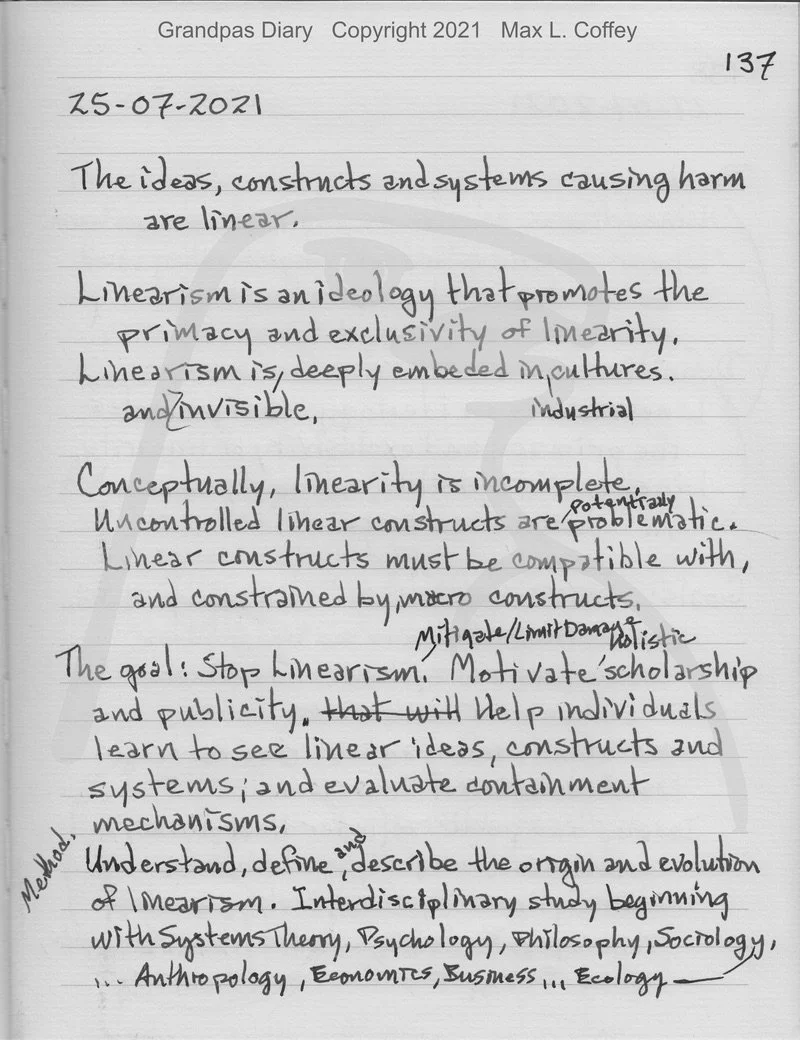 Grandpas Diary Copyright 2021 Max L. Coffey
137
25-07-2021
The ideas, constructs and systems causing harm
are linear.
Linearism is an ideology that promotes the
primacy and exclusivity of linearity.
Linearism is, deeply embeded in, cultures.
and invisible,
industrial
Conceptually, linearity is incomplete.
potentially
Uncontrolled linear constructs are problematic.
Linear constructs must be compatible with,
and constrained by, macro constructs.
Mitigate/Limit Damage
holistic
The goal: Stop Linearism. Motivate scholarship
and publicity. that will Help individuals
learn to see linear ideas, constructs and
systems; and evaluate containment
mechanisms.
Method.
and
Understand, define, describe the origin and evolution
of linearism. Interdisciplinary study beginning
with Systems Theory, Psychology, Philosophy, Sociology,
... Anthropology, Economics, Business ... Ecology